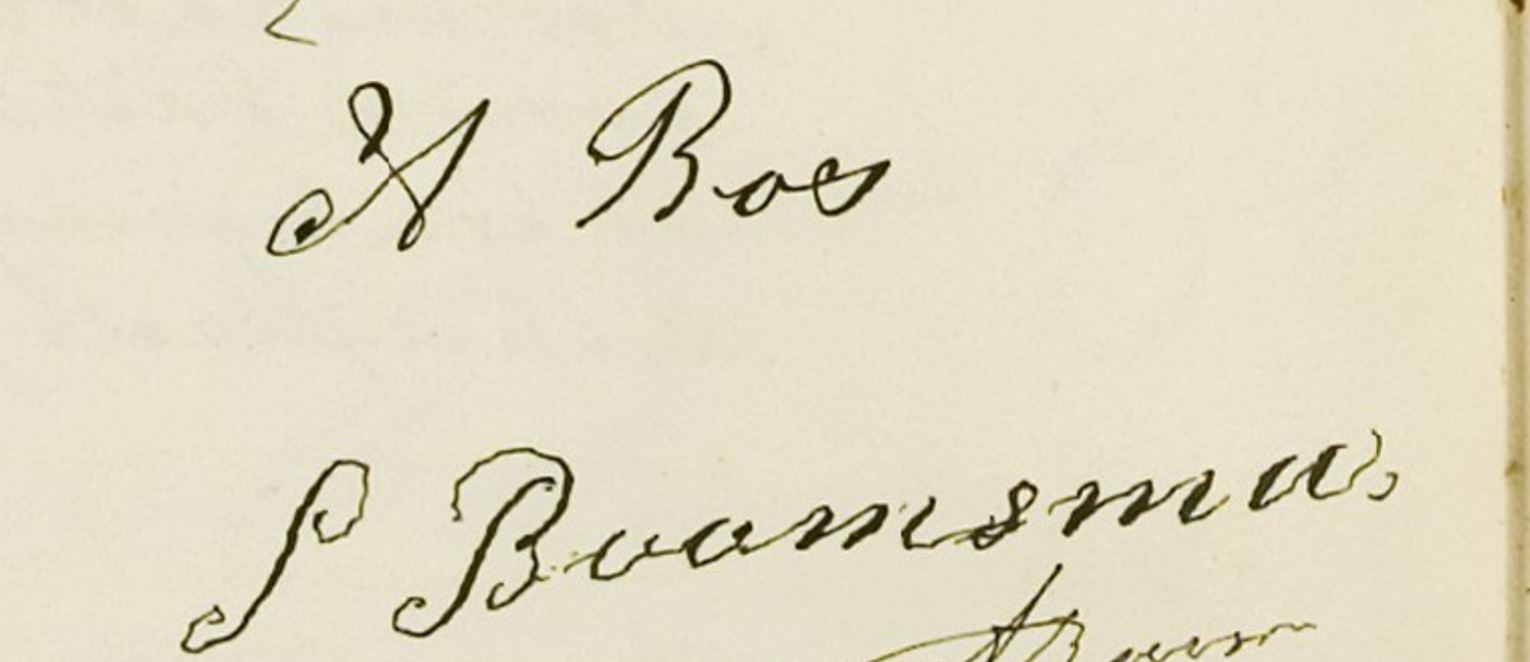 H Bos
S Boomsma